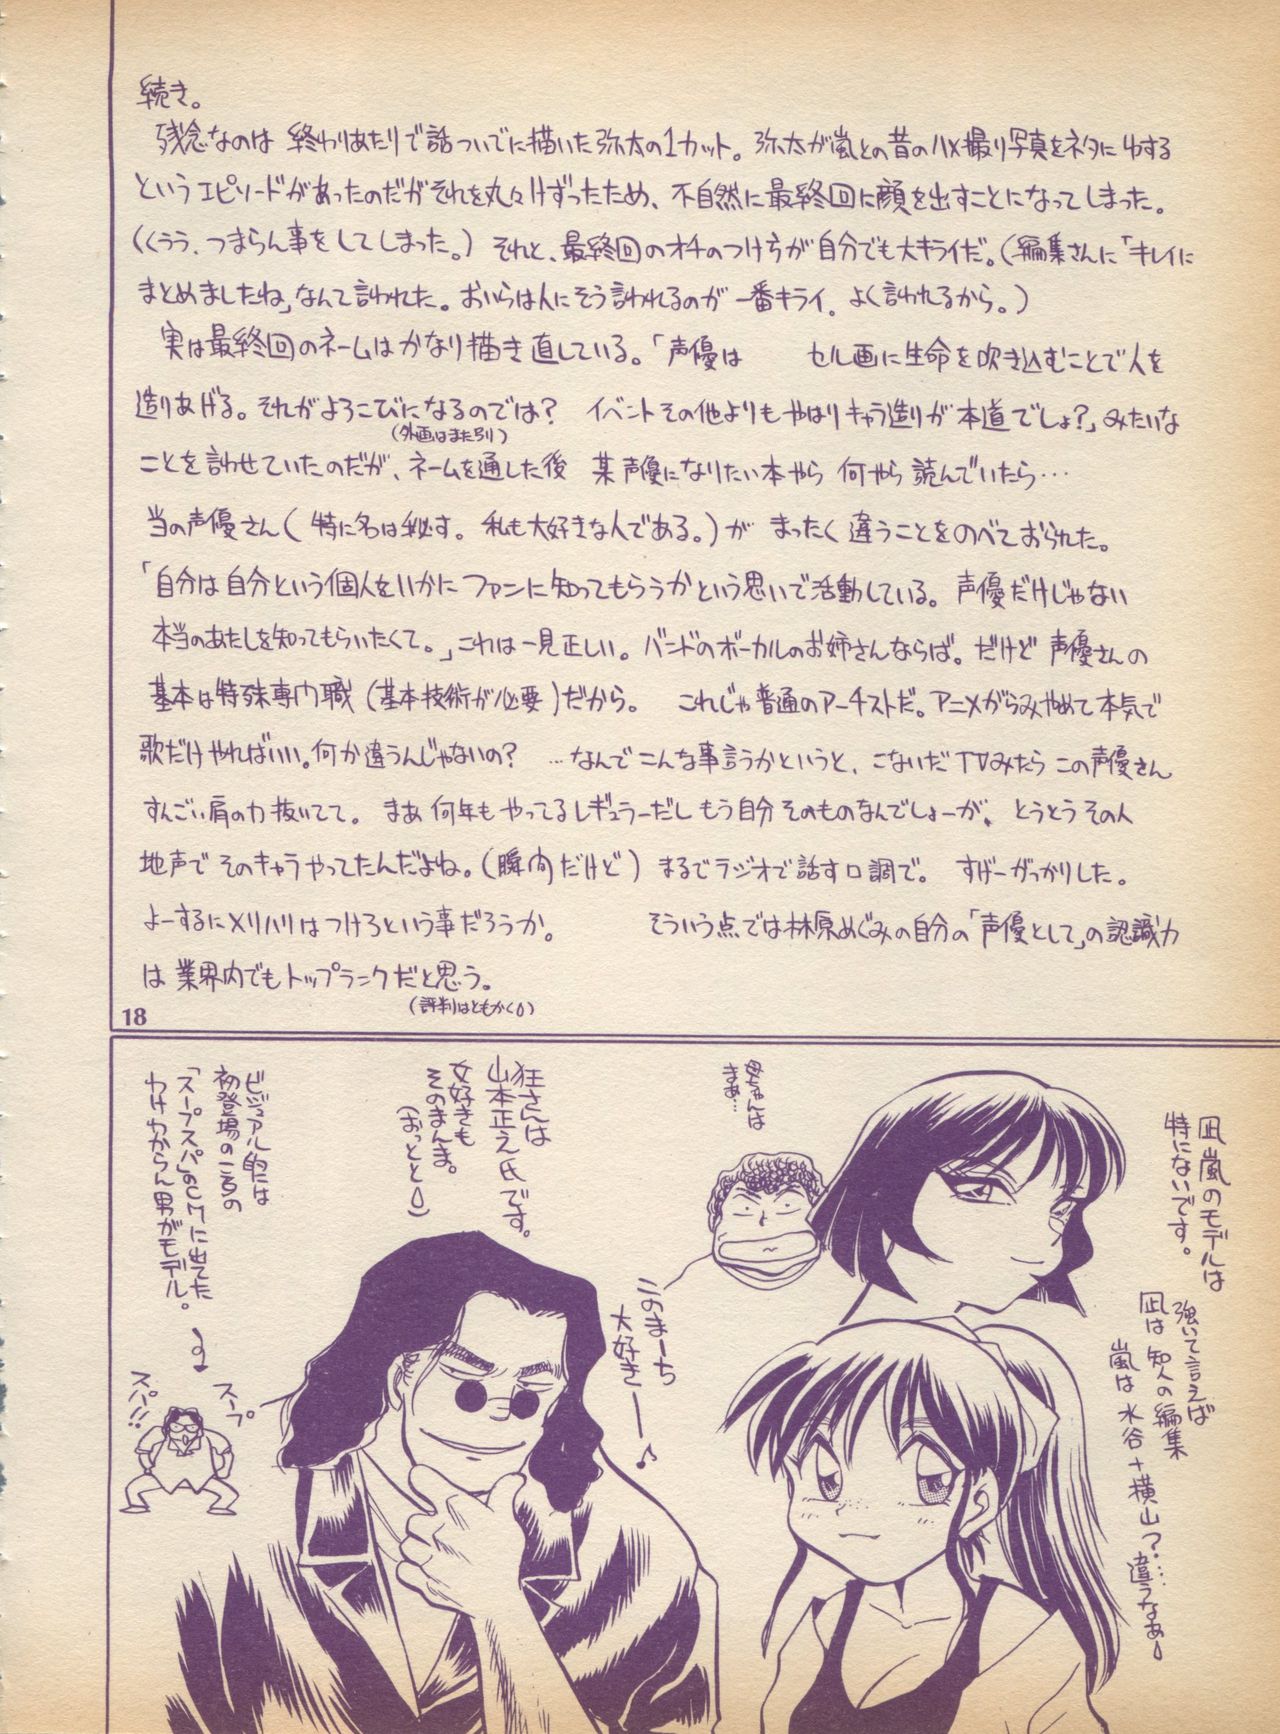 続き。
残念なのは 終わりあたりで話ついでに描いた弥太の1カット。弥太が嵐との昔のハメ撮り写真をネタにゆする
というエピソードがあったのだがそれを丸々けずったため、不自然に最終回に顔を出すことになってしまった。
(くうう、つまらん事をしてしまった。) それと、最終回のオチのつけ方が自分でも大キライだ。(編集さんに「キレイに
まとめましたね」なんて言われた。おいらは人にそう言われるのが 一番キライ。よく言われるから。)
実は最終回のネームはかなり描き直している。「声優は セル画に生命を吹き込むことで人を
造りあげる。それがよろこびになるのでは? イベントその他よりもやはりキャラ造りが本道でしょ?」みたいな
(外画はまた別)
ことを言わせていたのだが、ネームを通した後 某声優になりたい本やら 何やら 読んでいたら…
当の声優さん(特に名は秘す。私も大好きな人である。)が まったく違うことをのべておられた。
「自分は自分という個人をいかに ファンに知ってもらうかという思いで活動している。声優だけじゃない
本当のあたしを知ってもらいたくて。」これは一見正しい。バンドのボーカルのお姉さんならば。だけど 声優さんの
基本は特殊専門職(基本技術が必要)だから。 これじゃ普通のアーチストだ。アニメがらみやめて本気で
歌だけやればいい。何か違うんじゃないの? …なんでこんな事言うかというと、こないだTVみたらこの声優さん
すんごい肩の力抜いてて。まあ何年もやってるレギュラーだしもう自分そのものなんでしょーが、とうとうその人
地声でそのキャラやってたんだよね。(瞬間だけど) まるでラジオで話す口調で。 すげーがっかりした。
よーするにメリハリはつけろという事だろうか。 そういう点では林原めぐみの自分の「声優として」の認識力
は業界内でもトップランクだと思う。
(評判はともかく)
18
凪嵐のモデルは
特にないです。
強いて言えば
凪は知人の編集
嵐は水谷+横山?…
違うなあ
母ちゃんは
まあ…
このまーち
大好きー♪
狂さんは
山本正之氏です。
女好きも
そのまんま。
(おっとと)
ビジュアル的には
初登場の一言の
「スープスパ」のCMに出てた
わけわからん男がモデル。
スープ
スパ!!